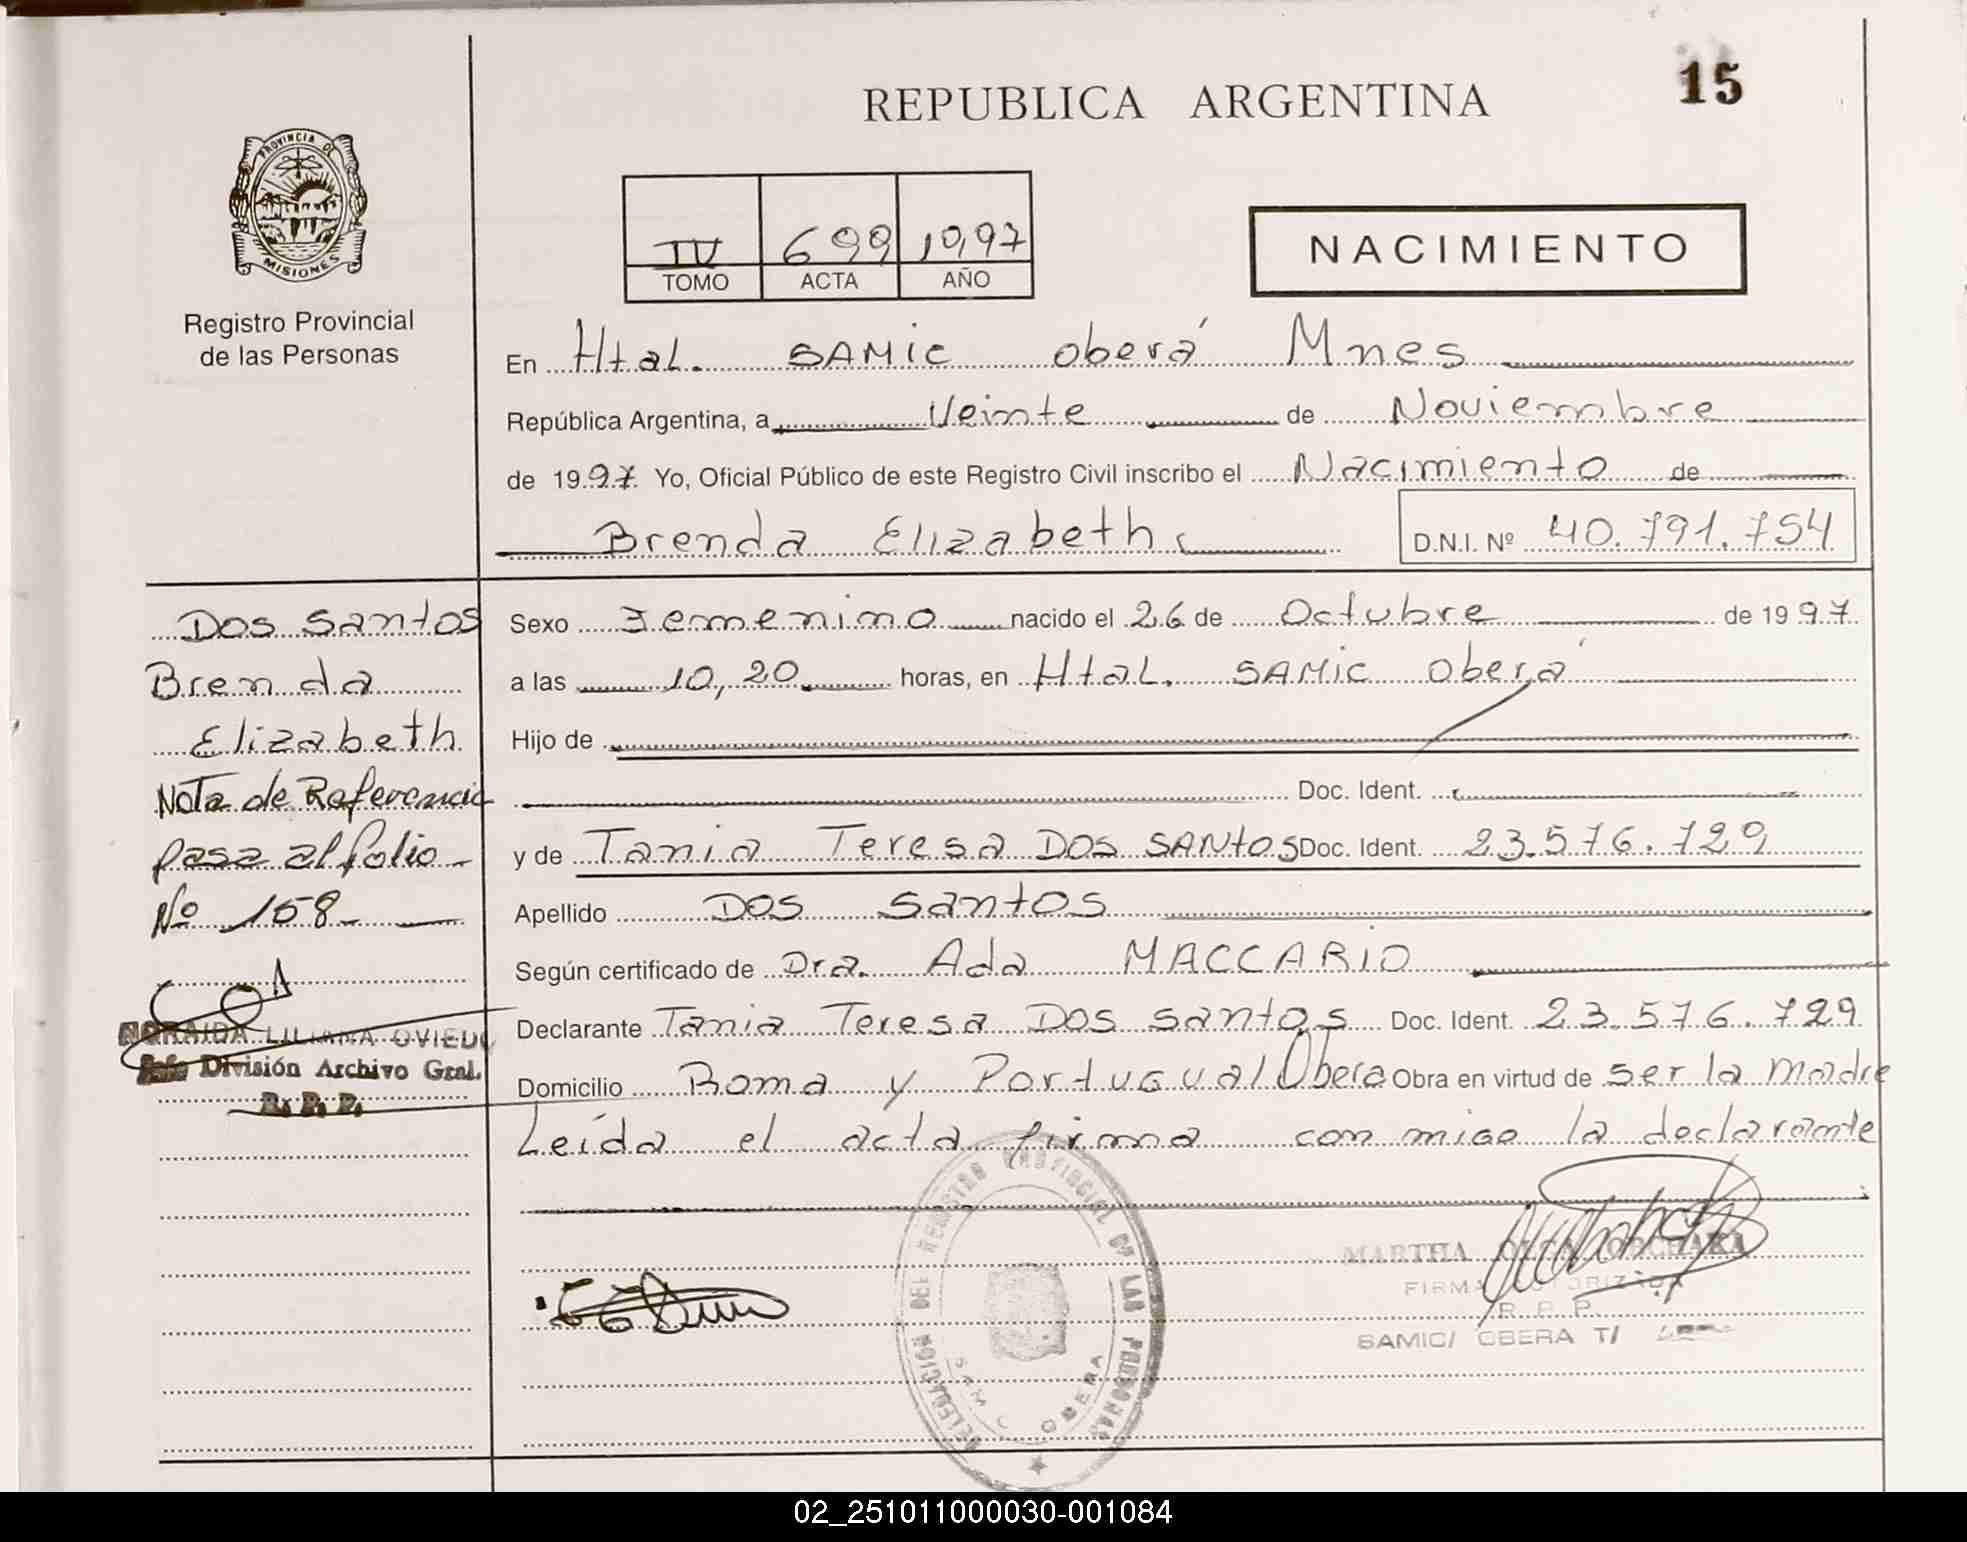 REPUBLICA ARGENTINA
15
PROVINCIA DE
MISIONES
Registro Provincial
de las Personas
IV 699 1997
TOMO ACTA AÑO
NACIMIENTO
En Htal. SAMIC Oberá Mnes
República Argentina, a Veinte de Noviembre
de 1997 Yo, Oficial Público de este Registro Civil inscribo el Nacimiento de
Brenda Elizabeth
D.N.I. Nº 40.791.754
Dos Santos
Brenda
Elizabeth
Nota de Referencia
pasa al folio
No 158
LILIANA OVIEDO
División Archivo Gral.
R. P. P.
Sexo Femenino nacido el 26 de Octubre de 1997
a las 10,20 horas, en Htal. SAMIC Oberá
Hijo de
Doc. Ident.
y de Tania Teresa DOS SANTOS Doc. Ident. 23.576.729
Apellido DOS SANTOS
Según certificado de Dra. Ada MACCARIO
Declarante Tania Teresa DOS SANTOS Doc. Ident. 23.576.729
Domicilio Roma y Portugual Obera Obra en virtud de ser la madre
Leída el acta firma con migo la declarante
DELEGACION DEL REGISTRO PROVINCIAL DE LAS PERSONAS
SAMIC OBERA
MARTHA
R. P. P.
SAMIC/ OBERA
02_251011000030-001084